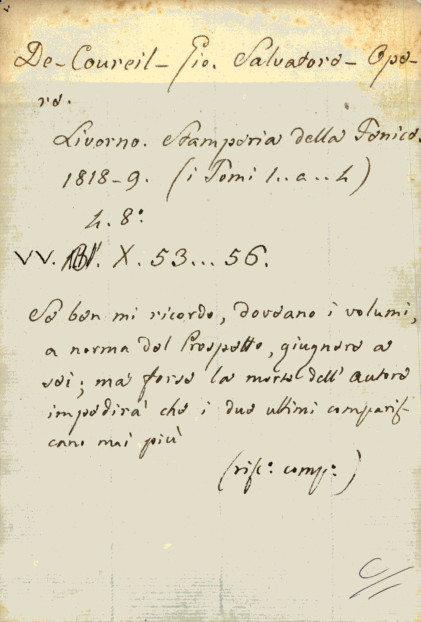 De-Coureil- Gio. Salvatore- Ope-
re.
Livorno. Stamperia della Fenice.
1818-9. (i Tomi 1..a..4)
4. 8°.
VV. X. 53...56.
Se ben mi ricordo, doveano i volumi,
a norma del Prospetto, giugnere a
sei; ma forse la morte dell'autore
impedirà che i due ultimi comparis-
cano mai più
(risc.° comp.°)